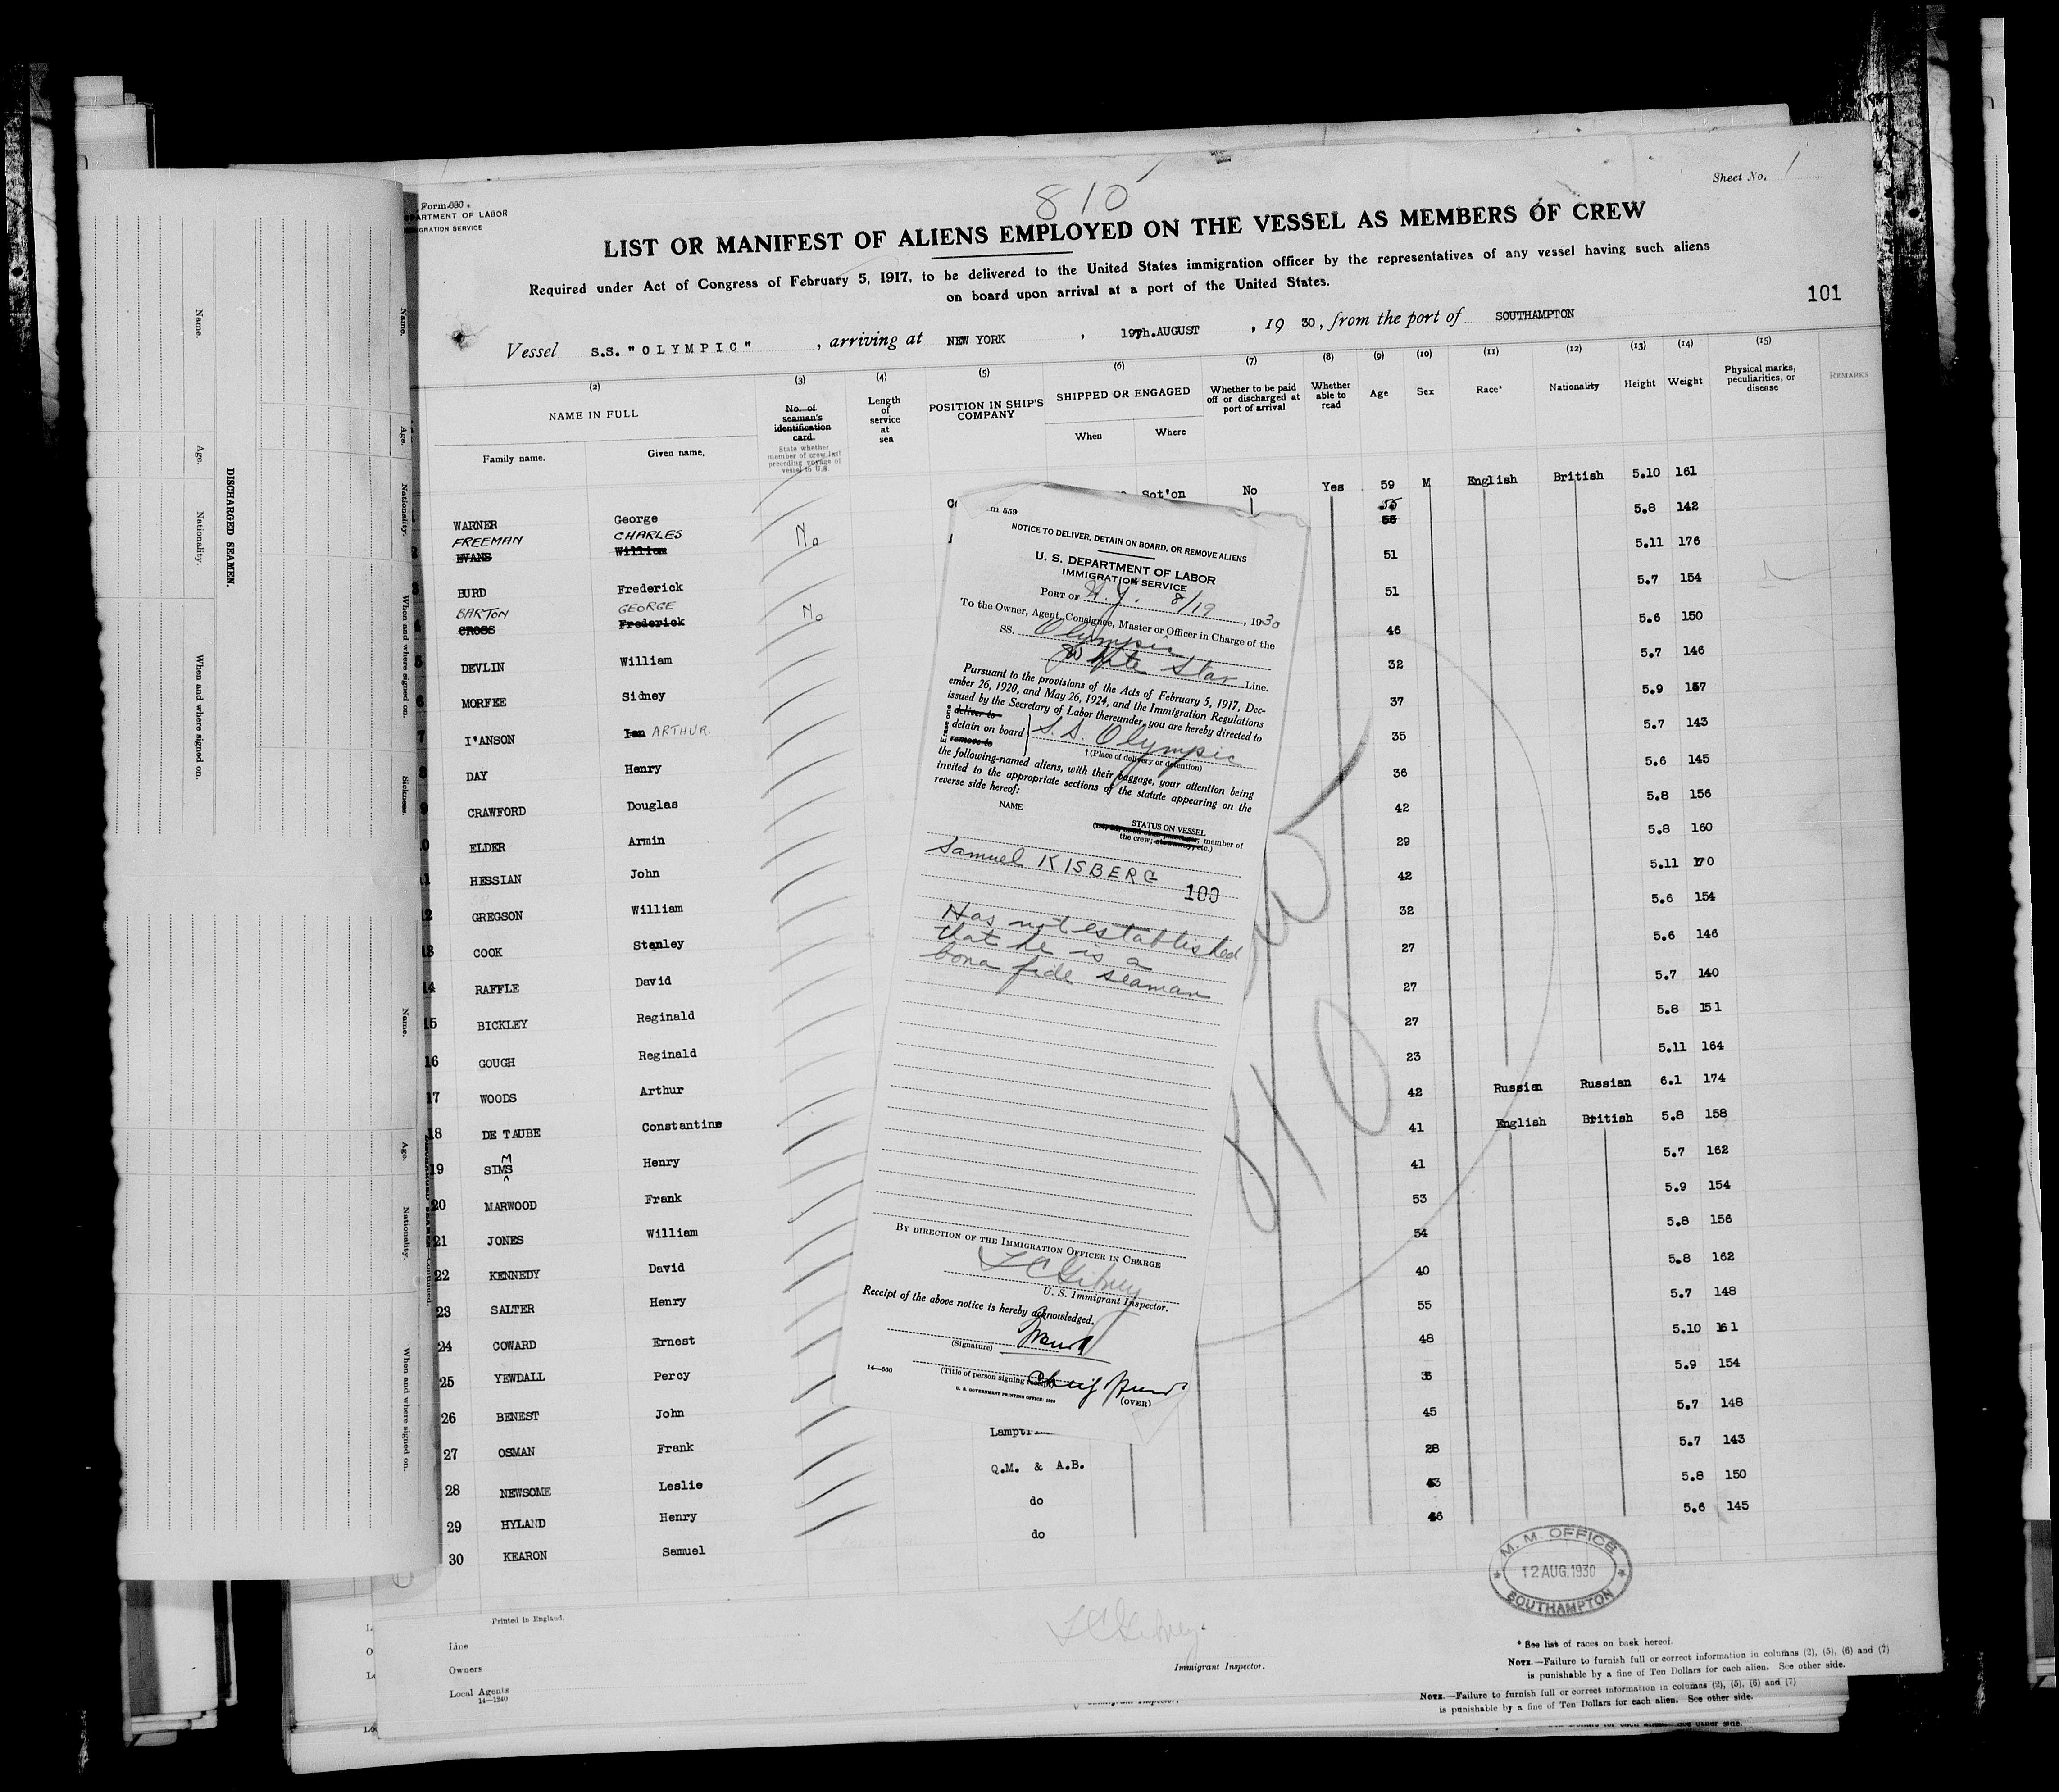 810
Sheet No. 1
Form 680
DEPARTMENT OF LABOR
IMMIGRATION SERVICE
LIST OR MANIFEST OF ALIENS EMPLOYED ON THE VESSEL AS MEMBERS OF CREW
Required under Act of Congress of February 5, 1917, to be delivered to the United States immigration officer by the representatives of any vessel having such aliens
on board upon arrival at a port of the United States.
101
Vessel S.S. "OLYMPIC" , arriving at NEW YORK , 19th. AUGUST , 19 30, from the port of SOUTHAMPTON
(2) (3) (4) (5) (6) (7) (8) (9) (10) (11) (12) (13) (14) (15)
NAME IN FULL
Family name. Given name.
No. of seaman's identification card.
State whether member of crew last preceding voyage of vessel to U.S.
Length of service at sea
POSITION IN SHIP'S COMPANY
SHIPPED OR ENGAGED
When Where
Whether to be paid off or discharged at port of arrival
Whether able to read
Age
Sex
Race*
Nationality
Height
Weight
Physical marks, peculiarities, or disease
REMARKS
WARNER George Sot'on No Yes 59 M English British 5.10 161
FREEMAN CHARLES No 55
2 EVANS William 56 5.8 142
3 BURD Frederick 51 5.11 176
BARTON GEORGE No
4 CROSS Frederick 51 5.7 154
5 DEVLIN William 46 5.6 150
6 MORFEE Sidney 32 5.7 146
7 I'ANSON Ian ARTHUR. 37 5.9 157
8 DAY Henry 35 5.7 143
9 CRAWFORD Douglas 36 5.6 145
0 ELDER Armin 42 5.8 156
1 HESSIAN John 29 5.8 160
2 GREGSON William 42 5.11 170
13 COOK Stanley 32 5.6 154
14 RAFFLE David 27 5.6 146
15 BICKLEY Reginald 27 5.7 140
16 GOUGH Reginald 27 5.8 151
17 WOODS Arthur 23 5.11 164
18 DE TAUBE Constantine 42 Russian Russian 6.1 174
19 SIMMS Henry 41 English British 5.8 158
20 MARWOOD Frank 41 5.7 162
21 JONES William 53 5.9 154
22 KENNEDY David 54 5.8 156
23 SALTER Henry 40 5.8 162
24 COWARD Ernest 55 5.7 148
25 YEWDALL Percy 48 5.10 161
26 BENEST John 5.9 154
27 OSMAN Frank 45 5.7 148
28 NEWSOME Leslie Q.M. & A.B. 28 5.7 143
29 HYLAND Henry do 43 5.8 150
30 KEARON Samuel do 46 5.6 145
m 559
NOTICE TO DELIVER, DETAIN ON BOARD, OR REMOVE ALIENS
U. S. DEPARTMENT OF LABOR
IMMIGRATION SERVICE
PORT OF N.Y. 8/19, 1930
To the Owner, Agent, Consignee, Master or Officer in Charge of the
SS. Olympic
White Star Line.
Pursuant to the provisions of the Acts of February 5, 1917, Dec-
ember 26, 1920, and May 26, 1924, and the Immigration Regulations
issued by the Secretary of Labor thereunder, you are hereby directed to
Erase one
deliver to
detain on board S.S. Olympic
remove to
†(Place of delivery or detention)
the following-named aliens, with their baggage, your attention being
invited to the appropriate sections of the statute appearing on the
reverse side hereof:
NAME
STATUS ON VESSEL
member of
the crew,
Samuel KISBERG
100
Has not established
that he is a
bona fide seaman
BY DIRECTION OF THE IMMIGRATION OFFICER IN CHARGE
U. S. Immigrant Inspector.
Receipt of the above notice is hereby acknowledged.
(Signature)
(Title of person signing receipt)
14—560
U. S. GOVERNMENT PRINTING OFFICE: 1929
(OVER)
M. M. OFFICE
12 AUG. 1930
SOUTHAMPTON
Printed in England.
Line
Owners
Local Agents
14—1240
Immigrant Inspector.
* See list of races on back hereof.
NOTE.—Failure to furnish full or correct information in columns (2), (5), (6) and (7)
is punishable by a fine of Ten Dollars for each alien. See other side.
NOTE.—Failure to furnish full or correct information in columns (2), (5), (6) and (7)
is punishable by a fine of Ten Dollars for each alien. See other side.
DISCHARGED SEAMEN.
Name.
Age.
Nationality.
When and where signed on.
Name.
Age.
Nationality.
When and where signed on.
Sickness
Name.
Age.
Nationality.
When and where signed on.